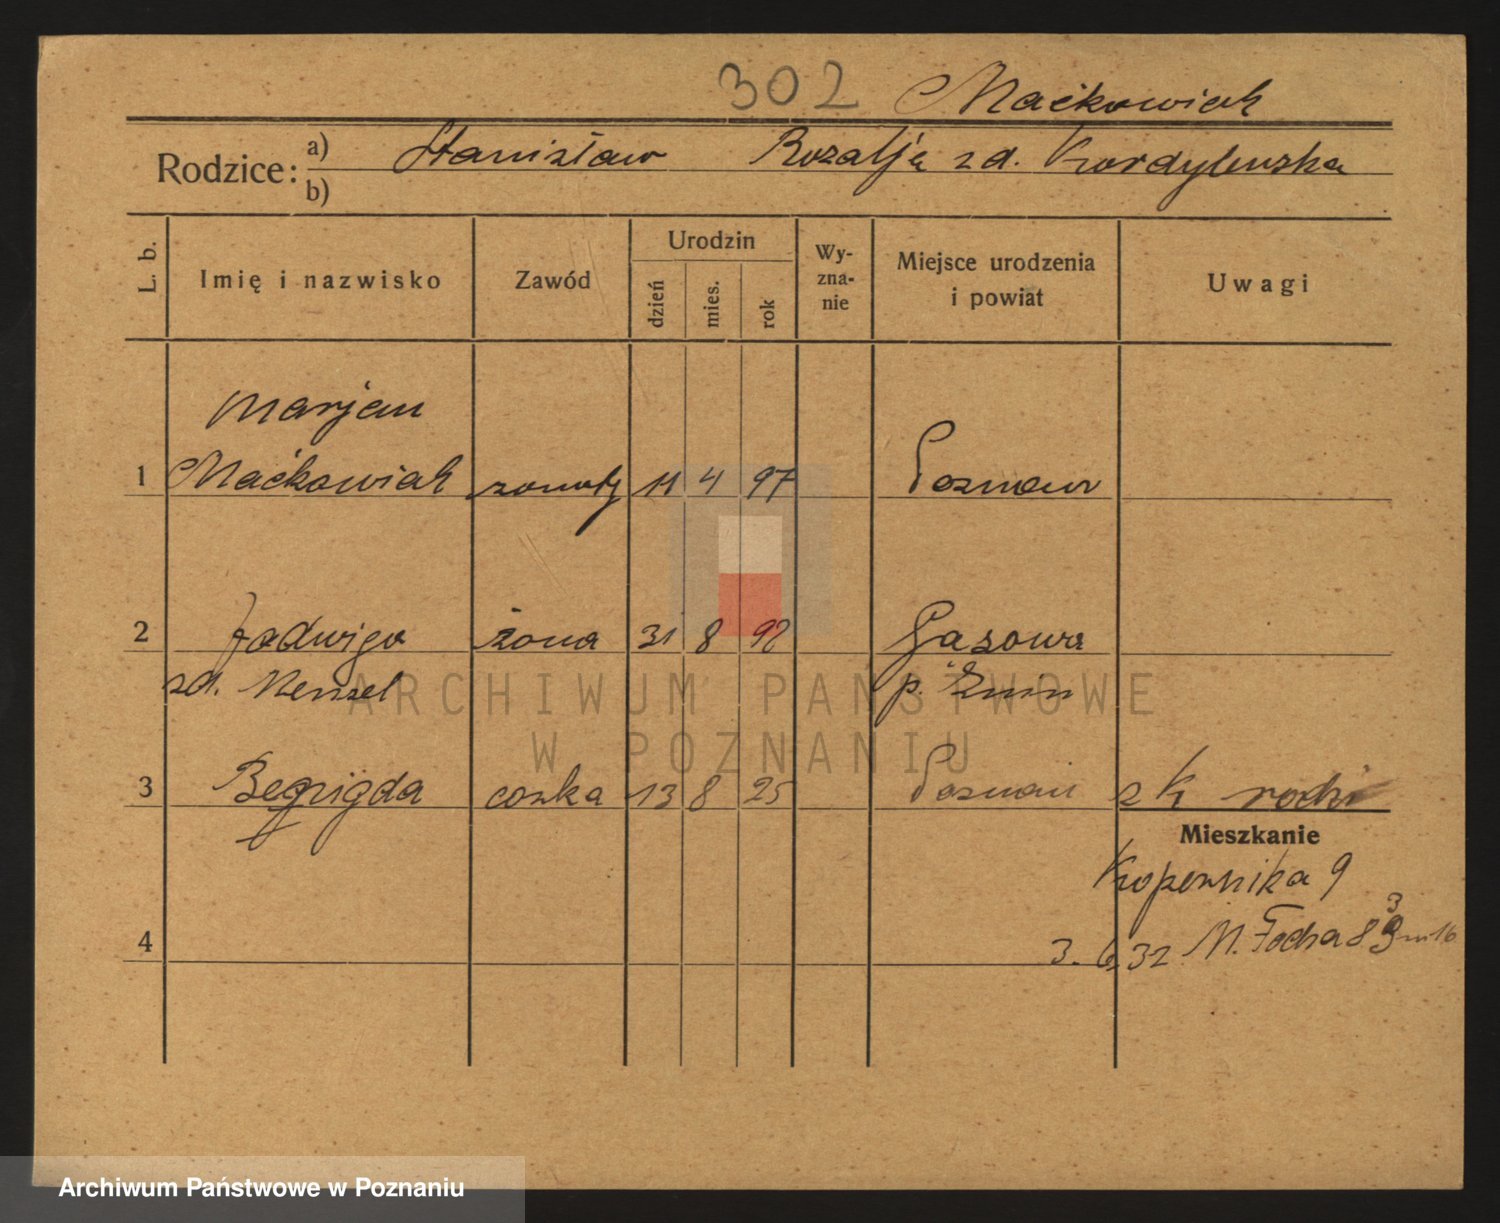 302 Maćkowiak
Rodzice: a) Stanisław Rozalja zd. Kordylewska
b)
L. b. Imię i nazwisko Zawód Urodzin dzień mies. rok Wy-zna-nie Miejsce urodzenia i powiat Uwagi
Marjan
1 Maćkowiak żonaty 11 4 97 Poznań
2 Jadwiga żona 31 8 92 Gąsowa
zd. Menzel p. Żnin
ARCHIWUM PAŃSTWOWE
W POZNANIU
3 córka 13 8 25 Poznań z k rodzi
Mieszkanie
Kopernika 9
4 3. 6. 32 M. Focha 8 m 16
Archiwum Państwowe w Poznaniu